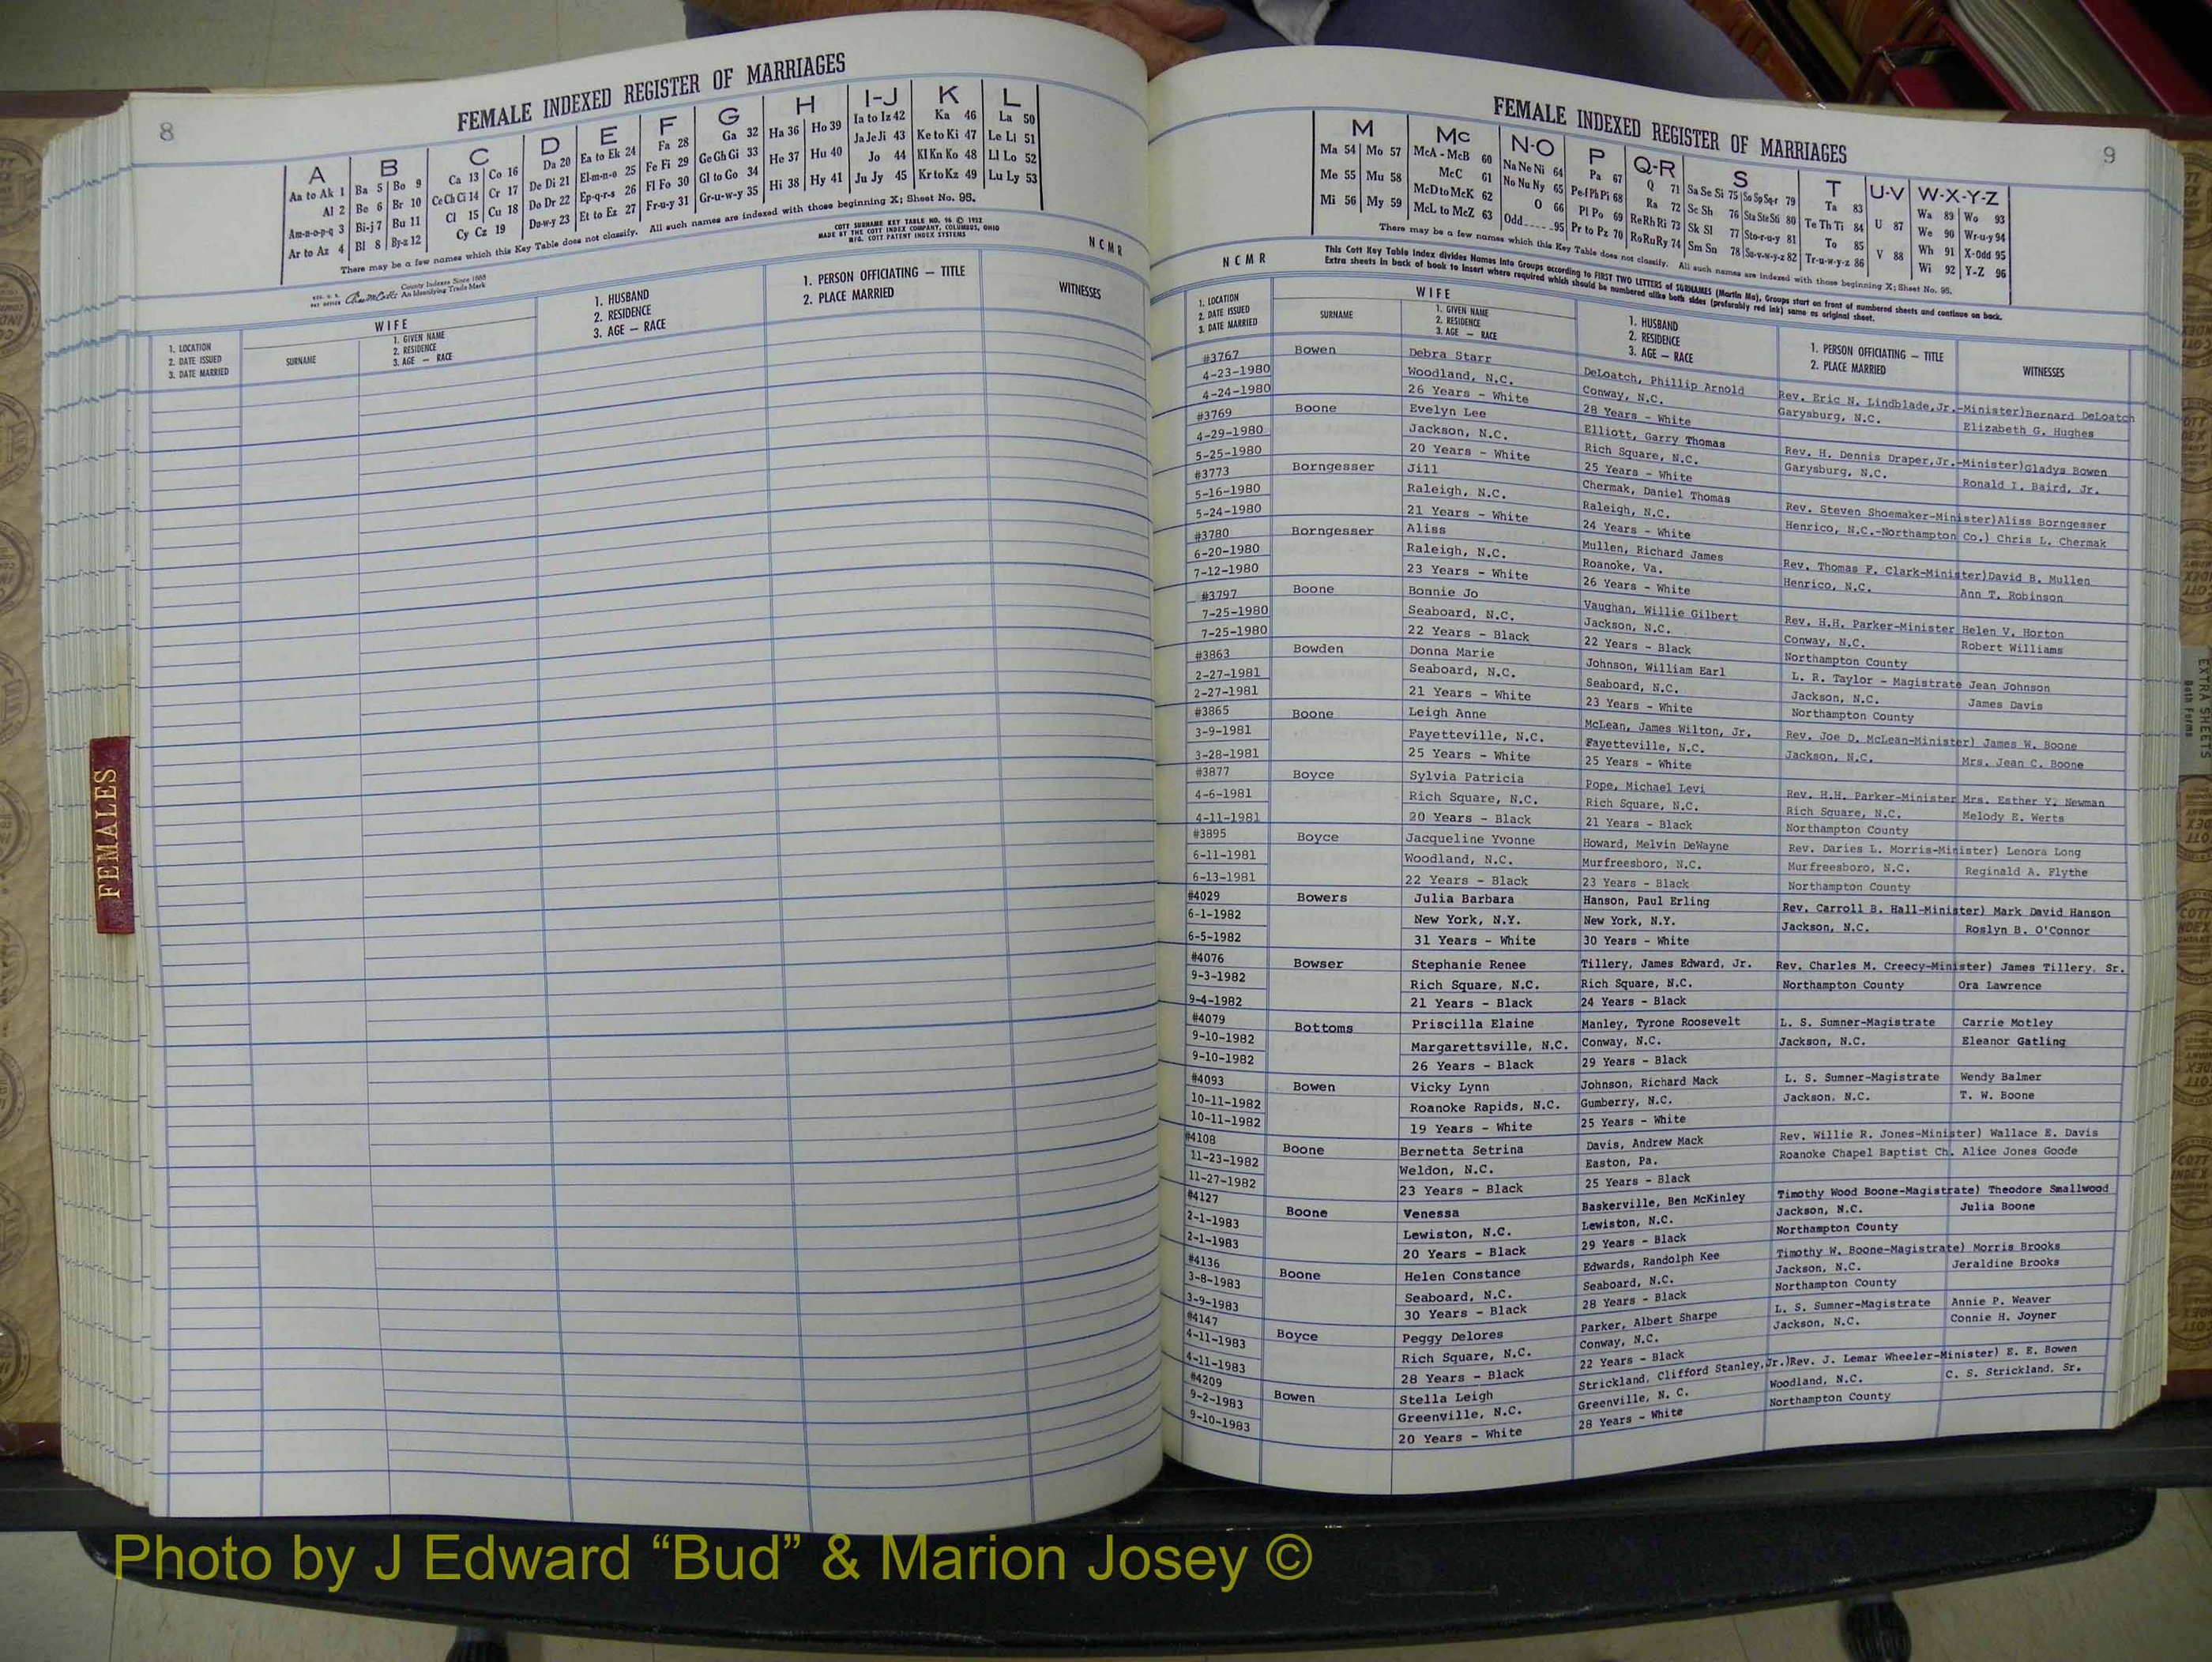 8
FEMALE INDEXED REGISTER OF MARRIAGES
A B C D E F G H I-J K L
Aa to Ak 1 Ba 5 Bo 9 Ca 13 Co 16 Da 20 Ea to Ek 24 Fa 28 Ga 32 Ha 36 Ho 39 Ia to Iz 42 Ka 46 La 50
Al 2 Be 6 Br 10 Ce Ch Ci 14 Cr 17 De Di 21 El-m-n-o 25 Fe Fi 29 Ge Gh Gi 33 He 37 Hu 40 Ja Je Ji 43 Ke to Ki 47 Le Li 51
Am-n-o-p-q 3 Bi-j 7 Bu 11 Cl 15 Cu 18 Do Dr 22 Ep-q-r-s 26 Fl Fo 30 Gl to Go 34 Hi 38 Hy 41 Jo 44 Kl Kn Ko 48 Ll Lo 52
Ar to Az 4 Bl 8 By-z 12 Cy Cz 19 Du-w-y 23 Et to Ez 27 Fr-u-y 31 Gr-u-w-y 35 Ju Jy 45 Kr to Kz 49 Lu Ly 53
There may be a few names which this Key Table does not classify. All such names are indexed with those beginning X; Sheet No. 95.
COTT SURNAME KEY TABLE NO. 96 © 1952
MADE BY THE COTT INDEX COMPANY, COLUMBUS, OHIO
MFG. COTT PATENT INDEX SYSTEMS
County Indexes Since 1888
An Identifying Trade Mark
N C M R
1. LOCATION
2. DATE ISSUED
3. DATE MARRIED
WIFE
SURNAME
1. GIVEN NAME
2. RESIDENCE
3. AGE — RACE
1. HUSBAND
2. RESIDENCE
3. AGE — RACE
1. PERSON OFFICIATING — TITLE
2. PLACE MARRIED
WITNESSES
FEMALES
9
FEMALE INDEXED REGISTER OF MARRIAGES
M Mc N-O P Q-R S T U-V W-X-Y-Z
Ma 54 Mo 57 McA - McB 60 Na Ne Ni 64 Pa 67 Q 71 Sa Se Si 75 So Sp Sq-r 79 Ta 83 U 87 Wa 89 Wo 93
Me 55 Mu 58 McC 61 No Nu Ny 65 Pe-f Ph Pi 68 Ra 72 Sc Sh 76 Sta Ste Sti 80 Te Th Ti 84 V 88 We 90 Wr-u-y 94
Mi 56 My 59 McD to McK 62 O 66 Pl Po 69 Re Rh Ri 73 Sk Sl 77 Sto-r-u-y 81 To 85 Wh 91 X-Odd 95
McL to McZ 63 Odd 95 Pr to Pz 70 Ro Ru Ry 74 Sm Sn 78 Su-v-w-y-z 82 Tr-u-w-y-z 86 Wi 92 Y-Z 96
There may be a few names which this Key Table does not classify. All such names are indexed with those beginning X; Sheet No. 95.
This Cott Key Table Index divides Names into Groups according to FIRST TWO LETTERS of SURNAMES (Martin Ma), Groups start on front of numbered sheets and continue on back.
Extra sheets in back of book to insert where required which should be numbered alike both sides (preferably red ink) same as original sheet.
N C M R
1. LOCATION
2. DATE ISSUED
3. DATE MARRIED
WIFE
SURNAME
1. GIVEN NAME
2. RESIDENCE
3. AGE — RACE
1. HUSBAND
2. RESIDENCE
3. AGE — RACE
1. PERSON OFFICIATING — TITLE
2. PLACE MARRIED
WITNESSES
#3767 Bowen Debra Starr DeLoatch, Phillip Arnold Rev. Eric N. Lindblade,Jr.-Minister)Bernard DeLoatch
4-23-1980 Woodland, N.C. Conway, N.C. Garysburg, N.C. Elizabeth G. Hughes
4-24-1980 26 Years - White 28 Years - White
#3769 Boone Evelyn Lee Elliott, Garry Thomas Rev. H. Dennis Draper,Jr.-Minister)Gladys Bowen
4-29-1980 Jackson, N.C. Rich Square, N.C. Garysburg, N.C. Ronald I. Baird, Jr.
5-25-1980 20 Years - White 25 Years - White
#3773 Borngesser Jill Chermak, Daniel Thomas Rev. Steven Shoemaker-Minister)Aliss Borngesser
5-16-1980 Raleigh, N.C. Raleigh, N.C. Henrico, N.C.-Northampton Co.) Chris L. Chermak
5-24-1980 21 Years - White 24 Years - White
#3780 Borngesser Aliss Mullen, Richard James Rev. Thomas F. Clark-Minister)David B. Mullen
6-20-1980 Raleigh, N.C. Roanoke, Va. Henrico, N.C. Ann T. Robinson
7-12-1980 23 Years - White 26 Years - White
#3797 Boone Bonnie Jo Vaughan, Willie Gilbert Rev. H.H. Parker-Minister Helen V. Horton
7-25-1980 Seaboard, N.C. Jackson, N.C. Conway, N.C. Robert Williams
7-25-1980 22 Years - Black 22 Years - Black Northampton County
#3863 Bowden Donna Marie Johnson, William Earl L. R. Taylor - Magistrate Jean Johnson
2-27-1981 Seaboard, N.C. Seaboard, N.C. Jackson, N.C. James Davis
2-27-1981 21 Years - White 23 Years - White Northampton County
#3865 Boone Leigh Anne McLean, James Wilton, Jr. Rev. Joe D. McLean-Minister) James W. Boone
3-9-1981 Fayetteville, N.C. Fayetteville, N.C. Jackson, N.C. Mrs. Jean C. Boone
3-28-1981 25 Years - White 25 Years - White
#3877 Boyce Sylvia Patricia Pope, Michael Levi Rev. H.H. Parker-Minister Mrs. Esther Y. Newman
4-6-1981 Rich Square, N.C. Rich Square, N.C. Rich Square, N.C. Melody E. Werts
4-11-1981 20 Years - Black 21 Years - Black Northampton County
#3895 Boyce Jacqueline Yvonne Howard, Melvin DeWayne Rev. Daries L. Morris-Minister) Lenora Long
6-11-1981 Woodland, N.C. Murfreesboro, N.C. Murfreesboro, N.C. Reginald A. Flythe
6-13-1981 22 Years - Black 23 Years - Black Northampton County
#4029 Bowers Julia Barbara Hanson, Paul Erling Rev. Carroll B. Hall-Minister) Mark David Hanson
6-1-1982 New York, N.Y. New York, N.Y. Jackson, N.C. Roslyn B. O'Connor
6-5-1982 31 Years - White 30 Years - White
#4076 Bowser Stephanie Renee Tillery, James Edward, Jr. Rev. Charles M. Creecy-Minister) James Tillery, Sr.
9-3-1982 Rich Square, N.C. Rich Square, N.C. Northampton County Ora Lawrence
9-4-1982 21 Years - Black 24 Years - Black
#4079 Bottoms Priscilla Elaine Manley, Tyrone Roosevelt L. S. Sumner-Magistrate Carrie Motley
9-10-1982 Margarettsville, N.C. Conway, N.C. Jackson, N.C. Eleanor Gatling
9-10-1982 26 Years - Black 29 Years - Black
#4093 Bowen Vicky Lynn Johnson, Richard Mack L. S. Sumner-Magistrate Wendy Balmer
10-11-1982 Roanoke Rapids, N.C. Gumberry, N.C. Jackson, N.C. T. W. Boone
10-11-1982 19 Years - White 25 Years - White
#4108 Boone Bernetta Setrina Davis, Andrew Mack Rev. Willie R. Jones-Minister) Wallace E. Davis
11-23-1982 Weldon, N.C. Easton, Pa. Roanoke Chapel Baptist Ch. Alice Jones Goode
11-27-1982 23 Years - Black 25 Years - Black
#4127 Boone Venessa Baskerville, Ben McKinley Timothy Wood Boone-Magistrate) Theodore Smallwood
2-1-1983 Lewiston, N.C. Lewiston, N.C. Jackson, N.C. Julia Boone
2-1-1983 20 Years - Black 29 Years - Black Northampton County
#4136 Boone Helen Constance Edwards, Randolph Kee Timothy W. Boone-Magistrate) Morris Brooks
3-8-1983 Seaboard, N.C. Seaboard, N.C. Jackson, N.C. Jeraldine Brooks
3-9-1983 30 Years - Black 28 Years - Black Northampton County
#4147 Boyce Peggy Delores Parker, Albert Sharpe L. S. Sumner-Magistrate Annie P. Weaver
4-11-1983 Rich Square, N.C. Conway, N.C. Jackson, N.C. Connie H. Joyner
4-11-1983 28 Years - Black 22 Years - Black
#4209 Bowen Stella Leigh Strickland, Clifford Stanley,Jr.)Rev. J. Lemar Wheeler-Minister) E. E. Bowen
9-2-1983 Greenville, N.C. Greenville, N. C. Woodland, N.C. C. S. Strickland, Sr.
9-10-1983 20 Years - White 28 Years - White Northampton County
EXTRA SHEETS
Both Forms
Photo by J Edward “Bud” & Marion Josey ©